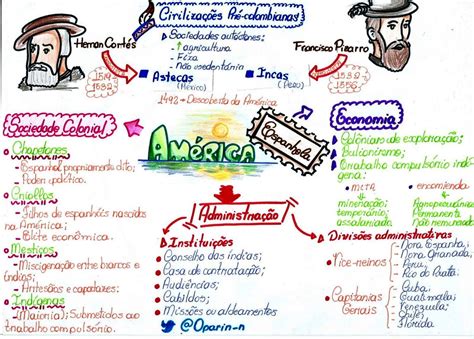 Civilizações Pré-colombianas
• Sociedades autóctones:
- ↑ agricultura
- Fixa
- Não sedentária
Hernan Cortés
Francisco Pizarro
1519
1532
• Astecas
(México)
• Incas
(Peru)
1532
1492 - Descoberta da América
Sociedade Colonial
• Chapetones
- Espanhol propriamente dito;
- Poder político.
• Criollos
- Filhos de espanhóis nascidos
na América;
- Elite econômica.
• Mestiços
- Miscigenação entre brancos e
índios;
- Artesãos e capatazes.
• Indígenas
- (Maioria) Submetidos ao
trabalho compulsório.
AMÉRICA
Espanhola
Economia
• Colônias de exploração;
• Bulionismo;
• Trabalho compulsório indí-
gena:
• mita
mineração;
temporário;
assalariado
• encomienda
Agropecuárias
Permanente
Não remunerado
Administração
• Instituições
- Conselho das índias;
- Casa de contratação;
- Audiências;
- Cabildos;
- Missões ou aldeamentos
@Oparin_n
• Divisões administrativas
• Vice-reinos
- Nova Espanha;
- Nova Granada;
- Peru;
- Rio da Prata;
• Capitanias
Gerais
- Cuba;
- Guatemala;
- Venezuela;
- Chile;
- Flórida